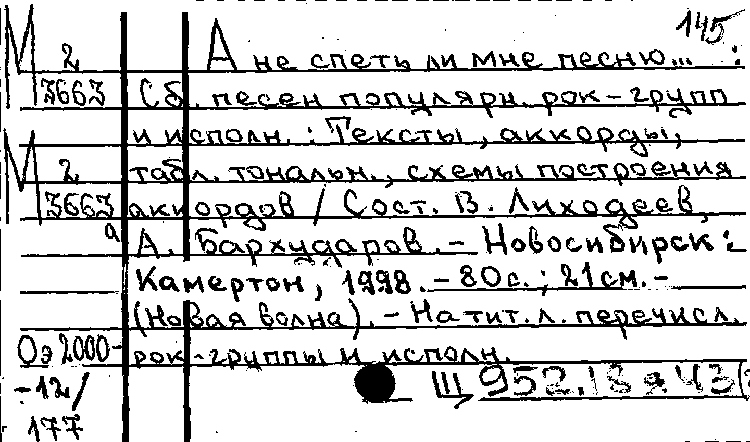 145
М 2 А не спеть ли мне песню... :
3663 Сб. песен популярн. рок-групп
и исполн. : Тексты, аккорды,
М 2 табл. тональн., схемы построения
3663 аккордов / Сост. В. Лиходеев,
а А. Бархударов. - Новосибирск :
Камертон, 1998. - 80с. ; 21см. -
(Новая волна). - На тит. л. перечисл.
Оэ 2000- рок-группы и исполн.
-12/ Щ 952.18 я 43
177